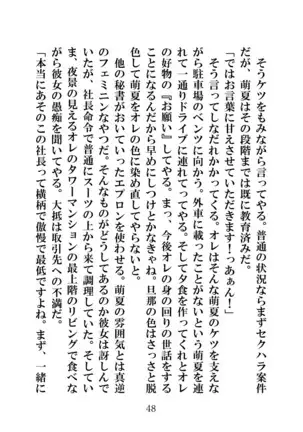 そうケツをもみながら言ってやる。普通の状況ならまずセクハラ案件
だが、萌夏はその段階までは既に教育済みだ。
「ではお言葉に甘えさせていただきます！っあぁん！」
そう言ってしなだれかかってくる。オレはそんな萌夏のケツを支えな
がら駐車場のベンツに向かう。外車に載ったことがないという萌夏を連
れて一通りドライブに連れてってやる。そして夕食を作ってくれとオレ
の好物の『お願い』してやる。まっ、今後オレの身の回りの世話をする
ことになるんだから早めにしつけとかなきゃね。旦那の色はさっさと脱
色して萌夏をオレの色に染め直してやらないと。
他の秘書がおいていったエプロンを使わせる。萌夏の雰囲気とは真逆
のフェミニンなやつだ。そんなものがどうしてあるのか彼女は訝しんで
いたが、社長命令で普通にスーツの上から来て調理していた。そしてい
ま、夜景の見えるオレのタワーマンションの最上階のリビングで食べな
がら彼女の愚痴を聞いてやる。大抵は取引先への不満だ。
「本当にあそこの社長って横柄で傲慢で最低ですよね。まず、一緒に
48